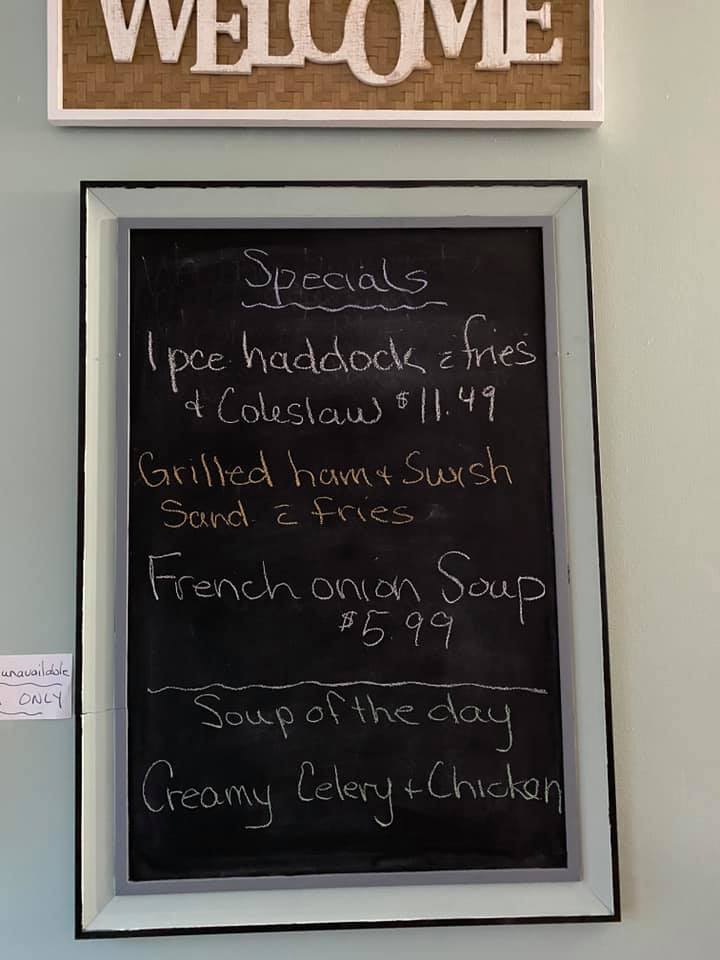 WELCOME
Specials
1 pce haddock c fries
& Coleslaw $11.49
Grilled ham & Swish
Sand c fries
French onion Soup
$5.99
Soup of the day
Creamy Celery + Chicken
unavailable
ONLY